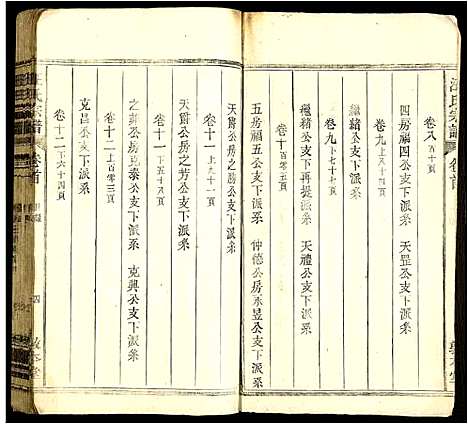 氏宗譜 卷首
卷八 五十頁
四房福四公支下派系 天罡公支下派系
卷九 上八十四頁
繼緒公支下派系
卷九 下七十七頁
繼緒公支下再提派系 天禮公支下派系
卷十 百零五頁
五房福五公支下派系 仲德公房永昱公支下派系
卷十一 上九十一頁
天爵公房之勝公支下派系
卷十一 下五十八頁
天爵公房之芳公支下派系
卷十二 上百零三頁
之 公房克泰公支下派系 克興公支下派系
卷十二 下六十四頁
克昌公支下派系
氏宗譜 卷首
四
敦本堂